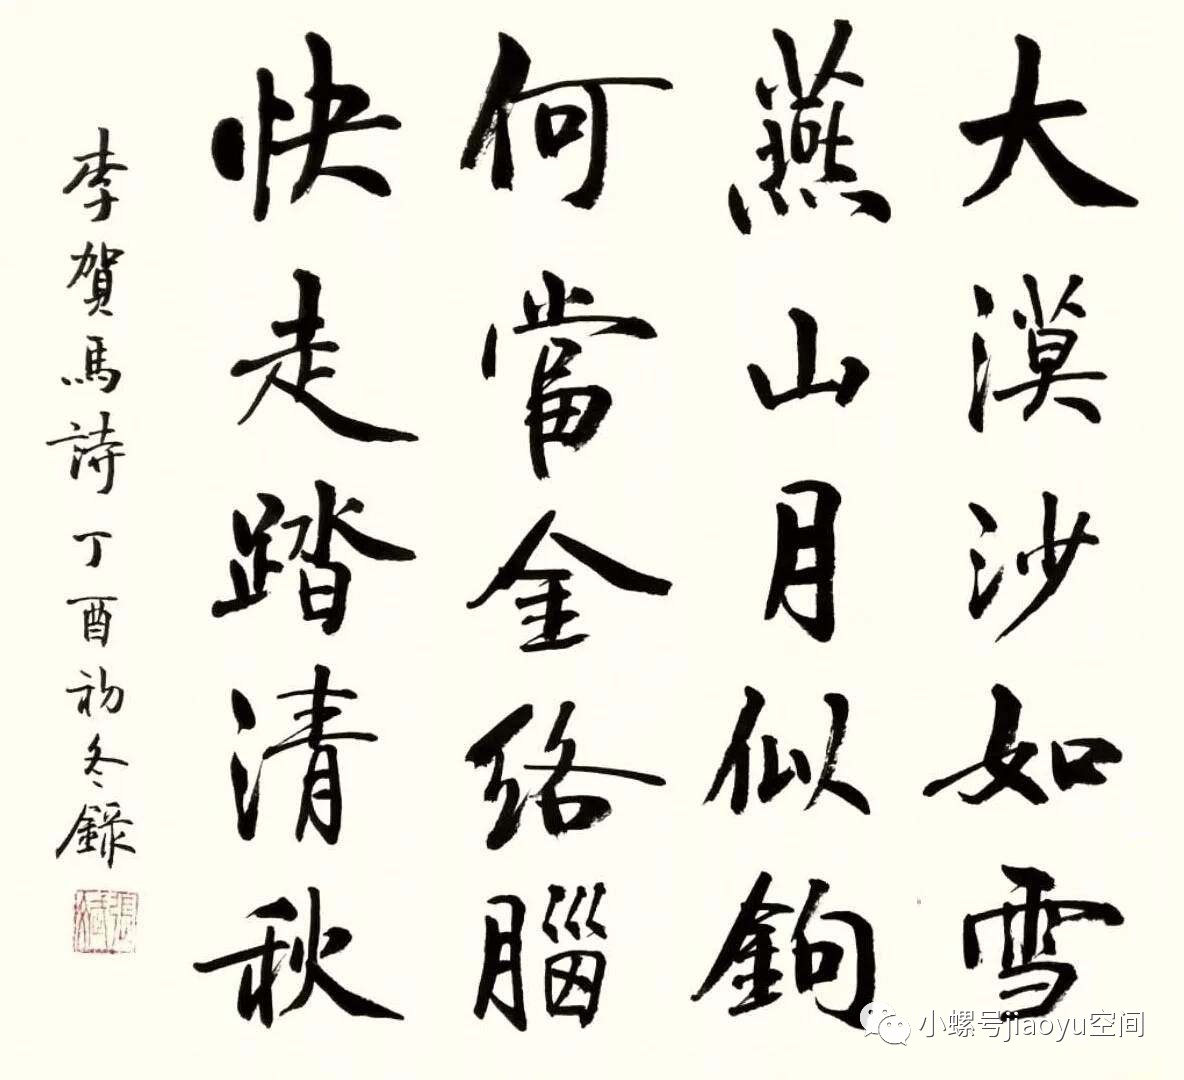 大漠沙如雪
燕山月似鉤
何當金絡腦
快走踏清秋
李賀馬詩丁酉初冬錄
小螺号jiaoyu空间